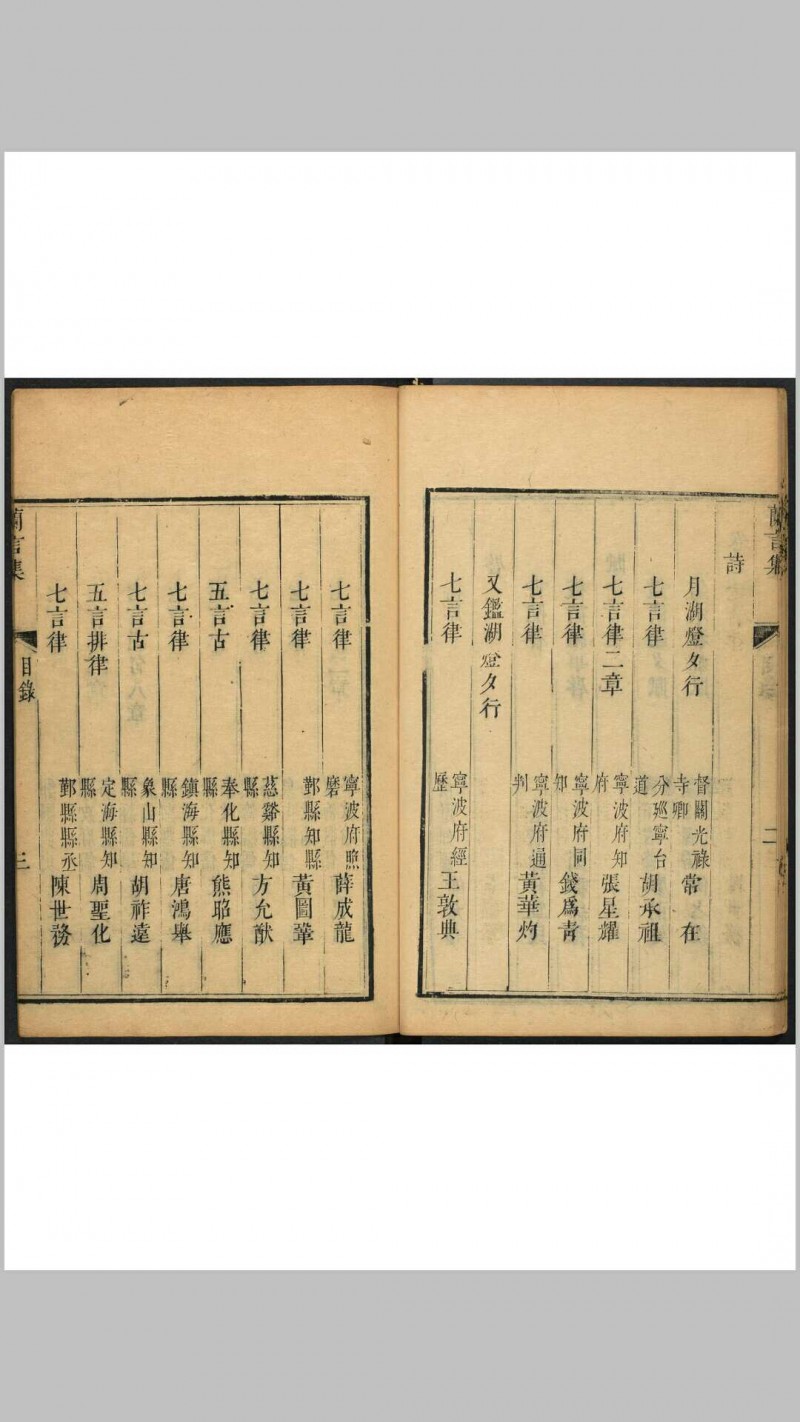 蘭言集
二
詩
月湖燈夕行 督關光祿寺卿 常在
七言律 分巡寧台道 胡承祖
七言律二章 寧波府知府 張星耀
七言律 寧波府同知 錢為青
七言律 寧波府通判 黃華灼
又鑑湖燈夕行
七言律 寧波府經歷 王敦典
七言律 寧波府照磨 薛成龍
七言律 鄞縣知縣 黃圖鞏
七言律 慈谿縣知縣 方允猷
五言古 奉化縣知縣 熊昭應
七言律 鎮海縣知縣 唐鴻舉
七言古 象山縣知縣 胡祚遠
五言排律 定海縣知縣 周聖化
七言律 鄞縣縣丞 陳世務
蘭言集 目錄 三